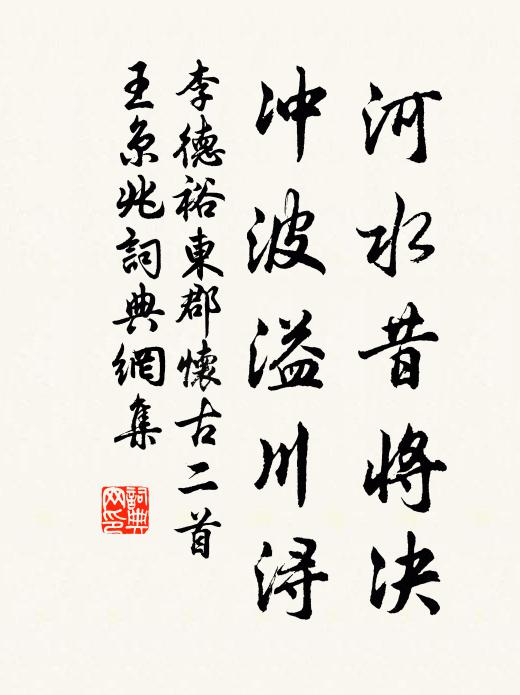 河水昔将决
冲波溢川浔
李德裕東郡懷古二首
王京兆詞典網集
詞典网印